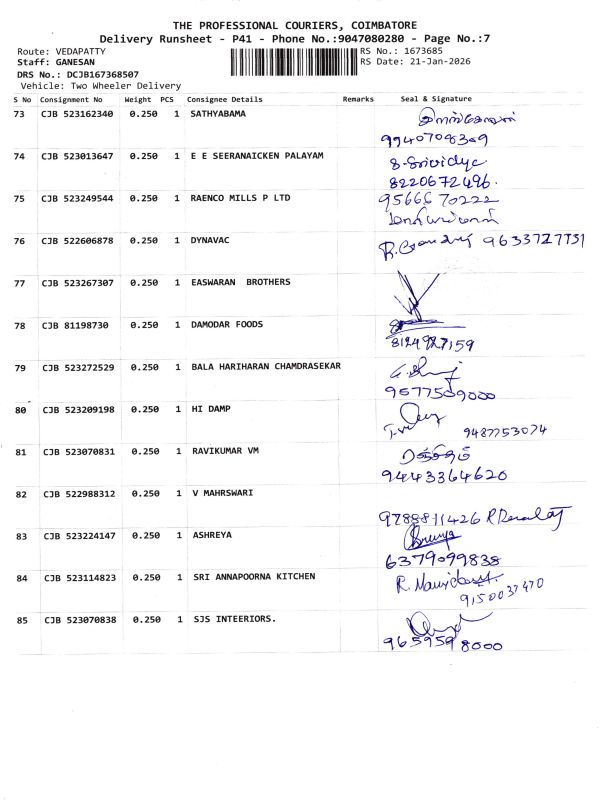 THE PROFESSIONAL COURIERS, COIMBATORE
Delivery Runsheet - P41 - Phone No.:9047080280 - Page No.:7
Route: VEDAPATTY RS No.: 1673685
Staff: GANESAN RS Date: 21-Jan-2026
DRS No.: DCJB167368507
Vehicle: Two Wheeler Delivery
S No Consignment No Weight PCS Consignee Details Remarks Seal & Signature
73 CJB 523162340 0.250 1 SATHYABAMA
9940708309
74 CJB 523013647 0.250 1 E E SEERANAICKEN PALAYAM S. Srividya
8220672496.
75 CJB 523249544 0.250 1 RAENCO MILLS P LTD 9566670222
76 CJB 522606878 0.250 1 DYNAVAC 9633727731
77 CJB 523267307 0.250 1 EASWARAN BROTHERS
78 CJB 81198730 0.250 1 DAMODAR FOODS
8124927159
79 CJB 523272529 0.250 1 BALA HARIHARAN CHAMDRASEKAR
9577509000
80 CJB 523209198 0.250 1 HI DAMP
9487753074
81 CJB 523070831 0.250 1 RAVIKUMAR VM
9443364620
82 CJB 522988312 0.250 1 V MAHRSWARI
9788811426
83 CJB 523224147 0.250 1 ASHREYA
6379099838
84 CJB 523114823 0.250 1 SRI ANNAPOORNA KITCHEN
9150037470
85 CJB 523070838 0.250 1 SJS INTEERIORS.
9659598000